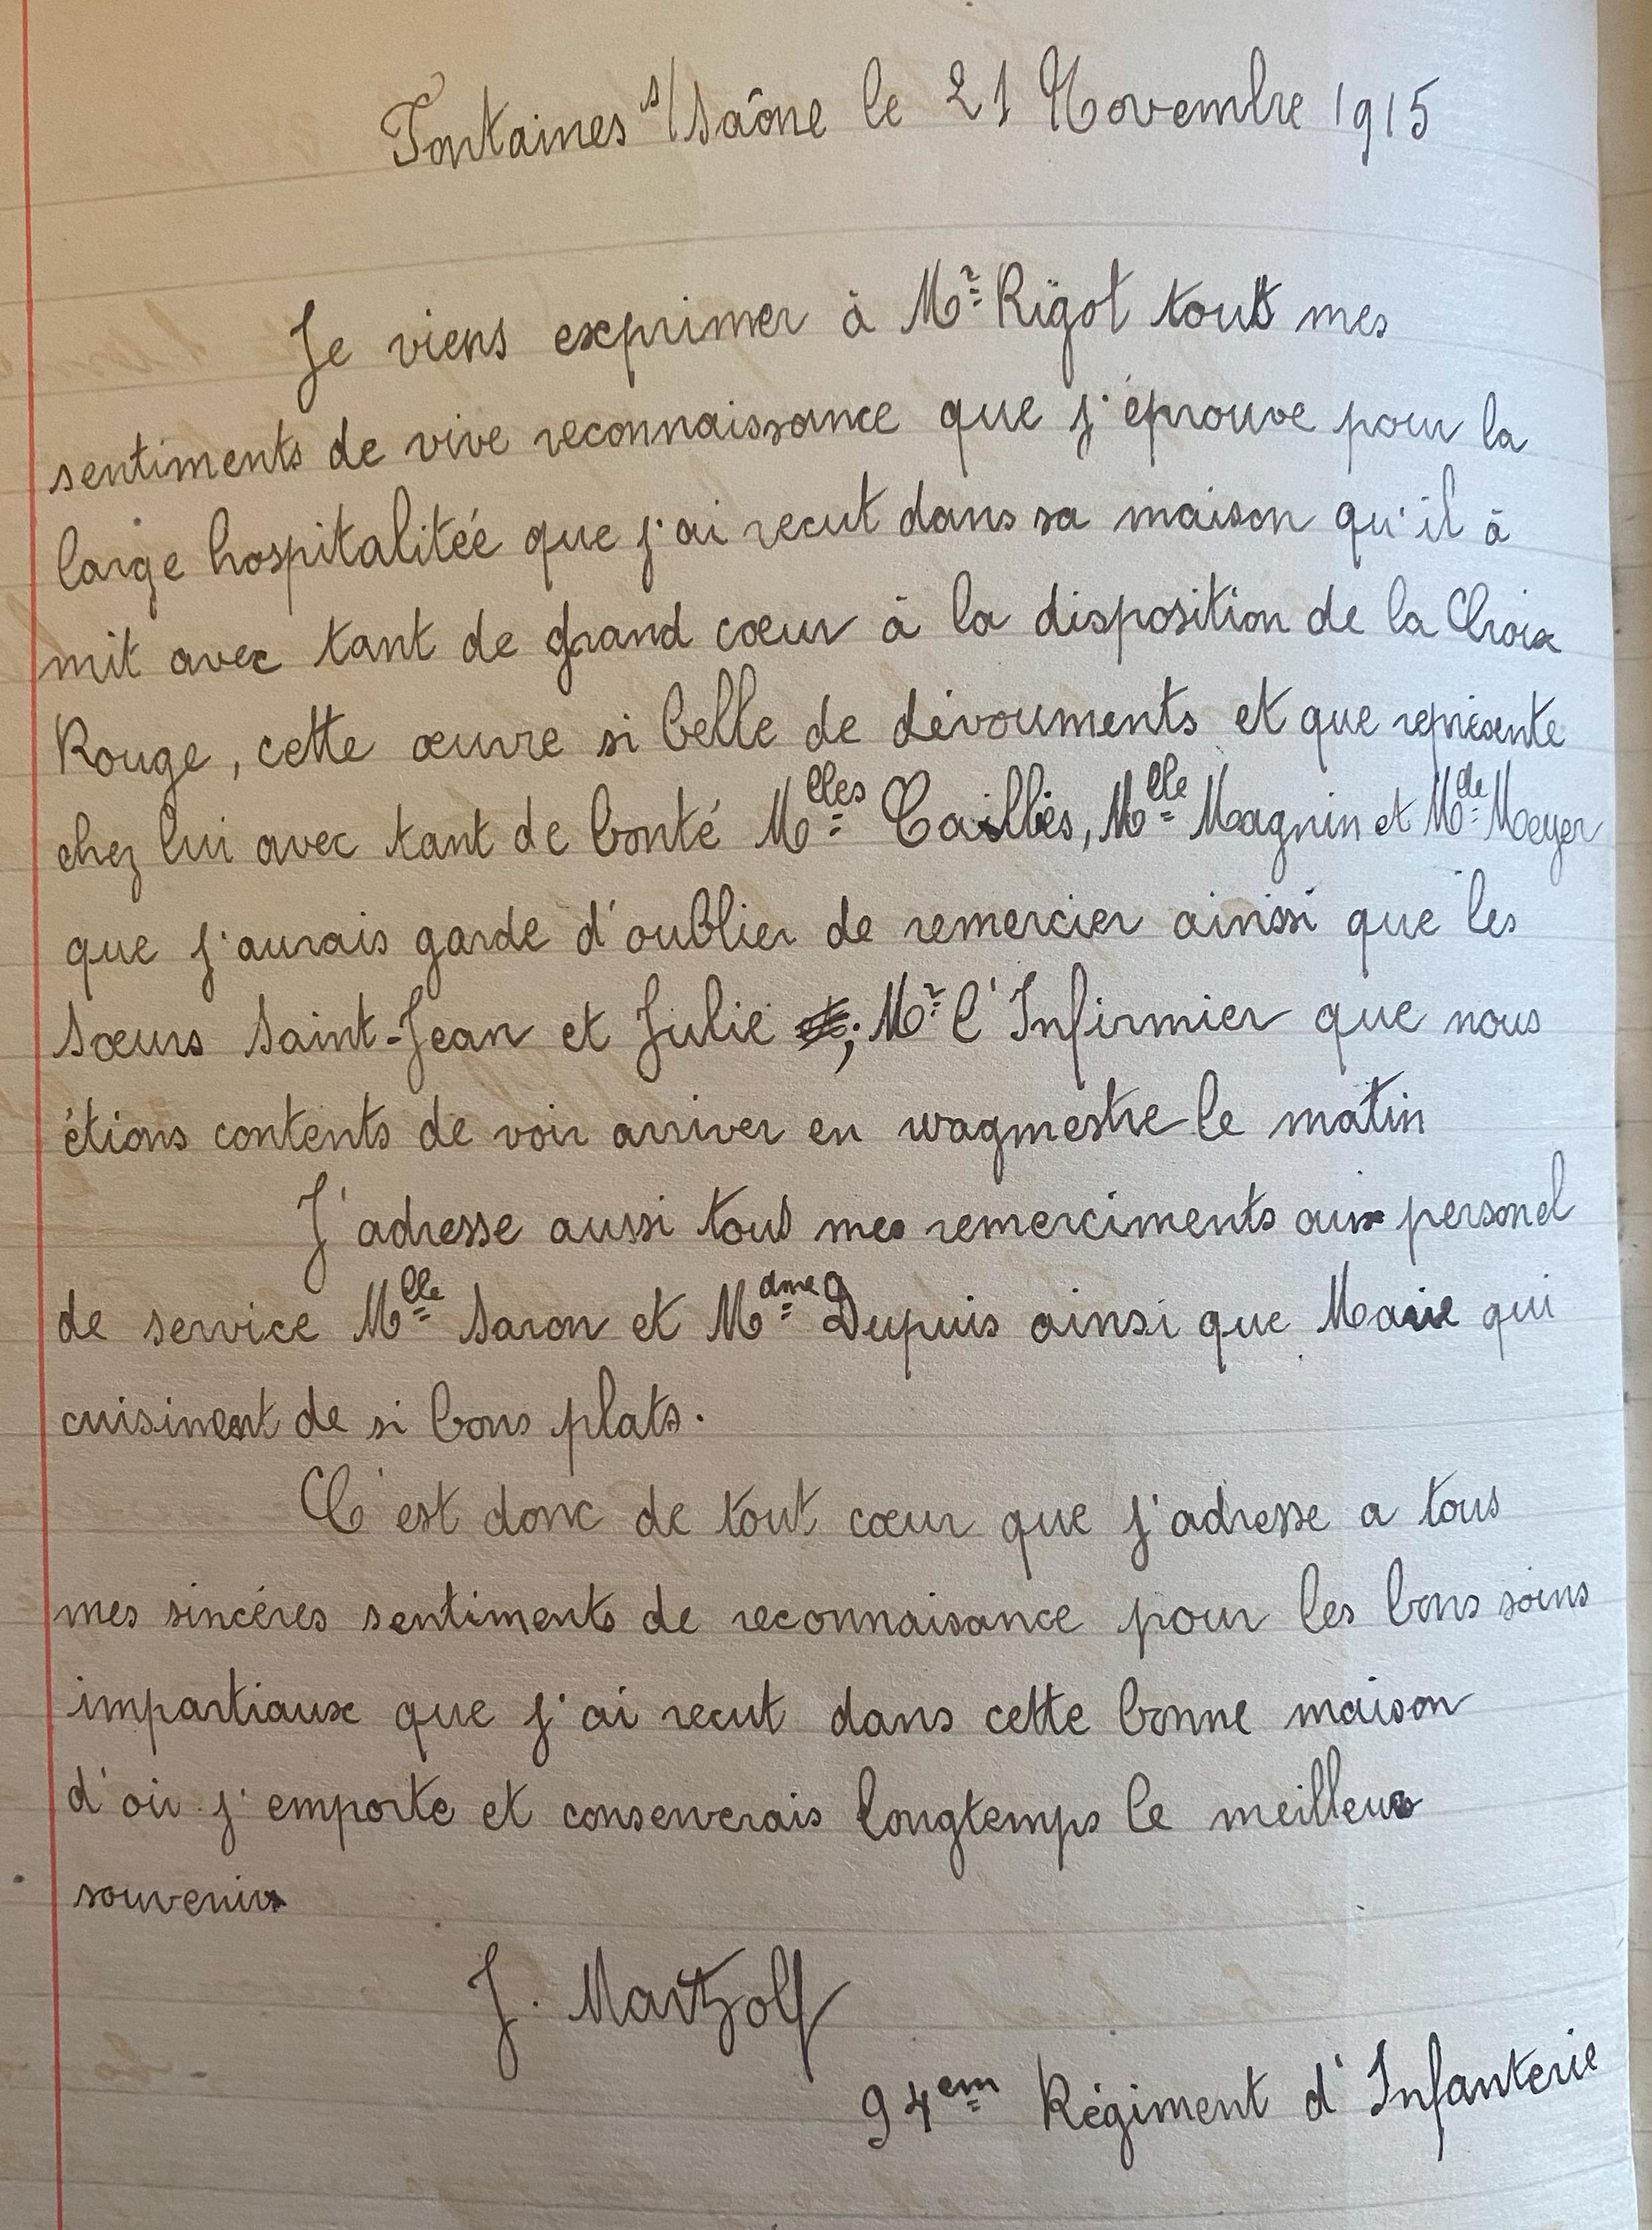 Fontaines s/Saône le 21 Novembre 1915
Je viens exprimer à Mr Rigot touts mes
sentiments de vive reconnaissance que j'éprouve pour la
large hospitalitée que j'ai recut dans sa maison qu'il à
mit avec tant de grand cœur à la disposition de la Croix
Rouge, cette œuvre si belle de dévouments et que représente
chez lui avec tant de bonté Melles Cailliès, Melle Magnin et Mde Meyer
que j'aurais garde d'oublier de remercier ainssi que les
Sœurs Saint-Jean et Julie ; Mr l'Infirmier que nous
étions contents de voir arriver en wagmestre le matin
J'adresse aussi tous mes remerciments aux personel
de service Melle Saron et Mdme Dupuis ainsi que Marie qui
cuisinent de si bons plats.
C'est donc de tout cœur que j'adresse a tous
mes sincéres sentiments de reconnaisance pour les bons soins
impartiaux que j'ai recut dans cette bonne maison
d'où j'emporte et conserverais longtemps le meilleurs
souvenirs
J. Martzolf
94em Régiment d'Infanterie